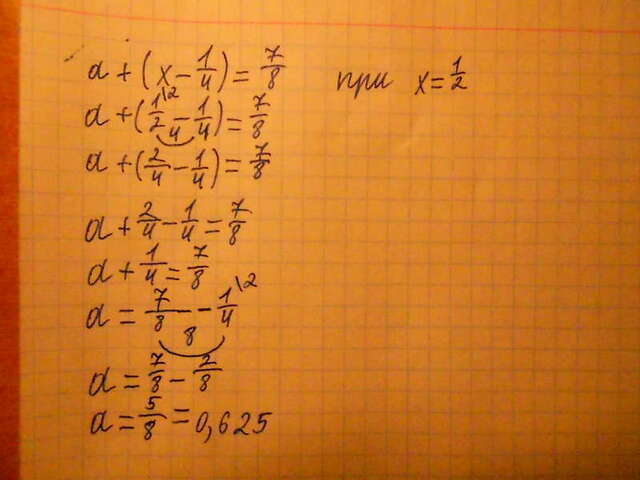 a + (x - 1/4) = 7/8 при x = 1/2
a + (1/2\2 - 1/4) = 7/8 4
a + (2/4 - 1/4) = 7/8
a + 2/4 - 1/4 = 7/8
a + 1/4 = 7/8
a = 7/8 - 1/4\2 8
a = 7/8 - 2/8
a = 5/8 = 0,625